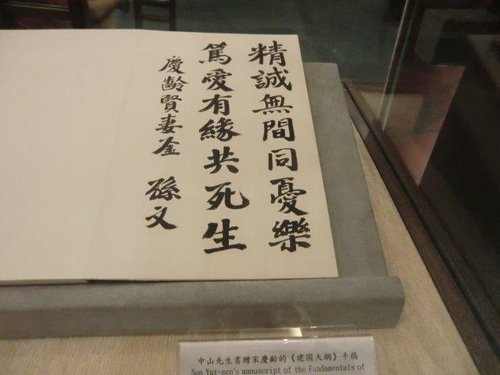 精誠無間同憂樂
篤愛有緣共死生
慶齡賢妻鉴 孫文
中山先生書贈宋慶齡的《建國大綱》手稿
Sun Yat-sen's manuscript of the Fundamentals of